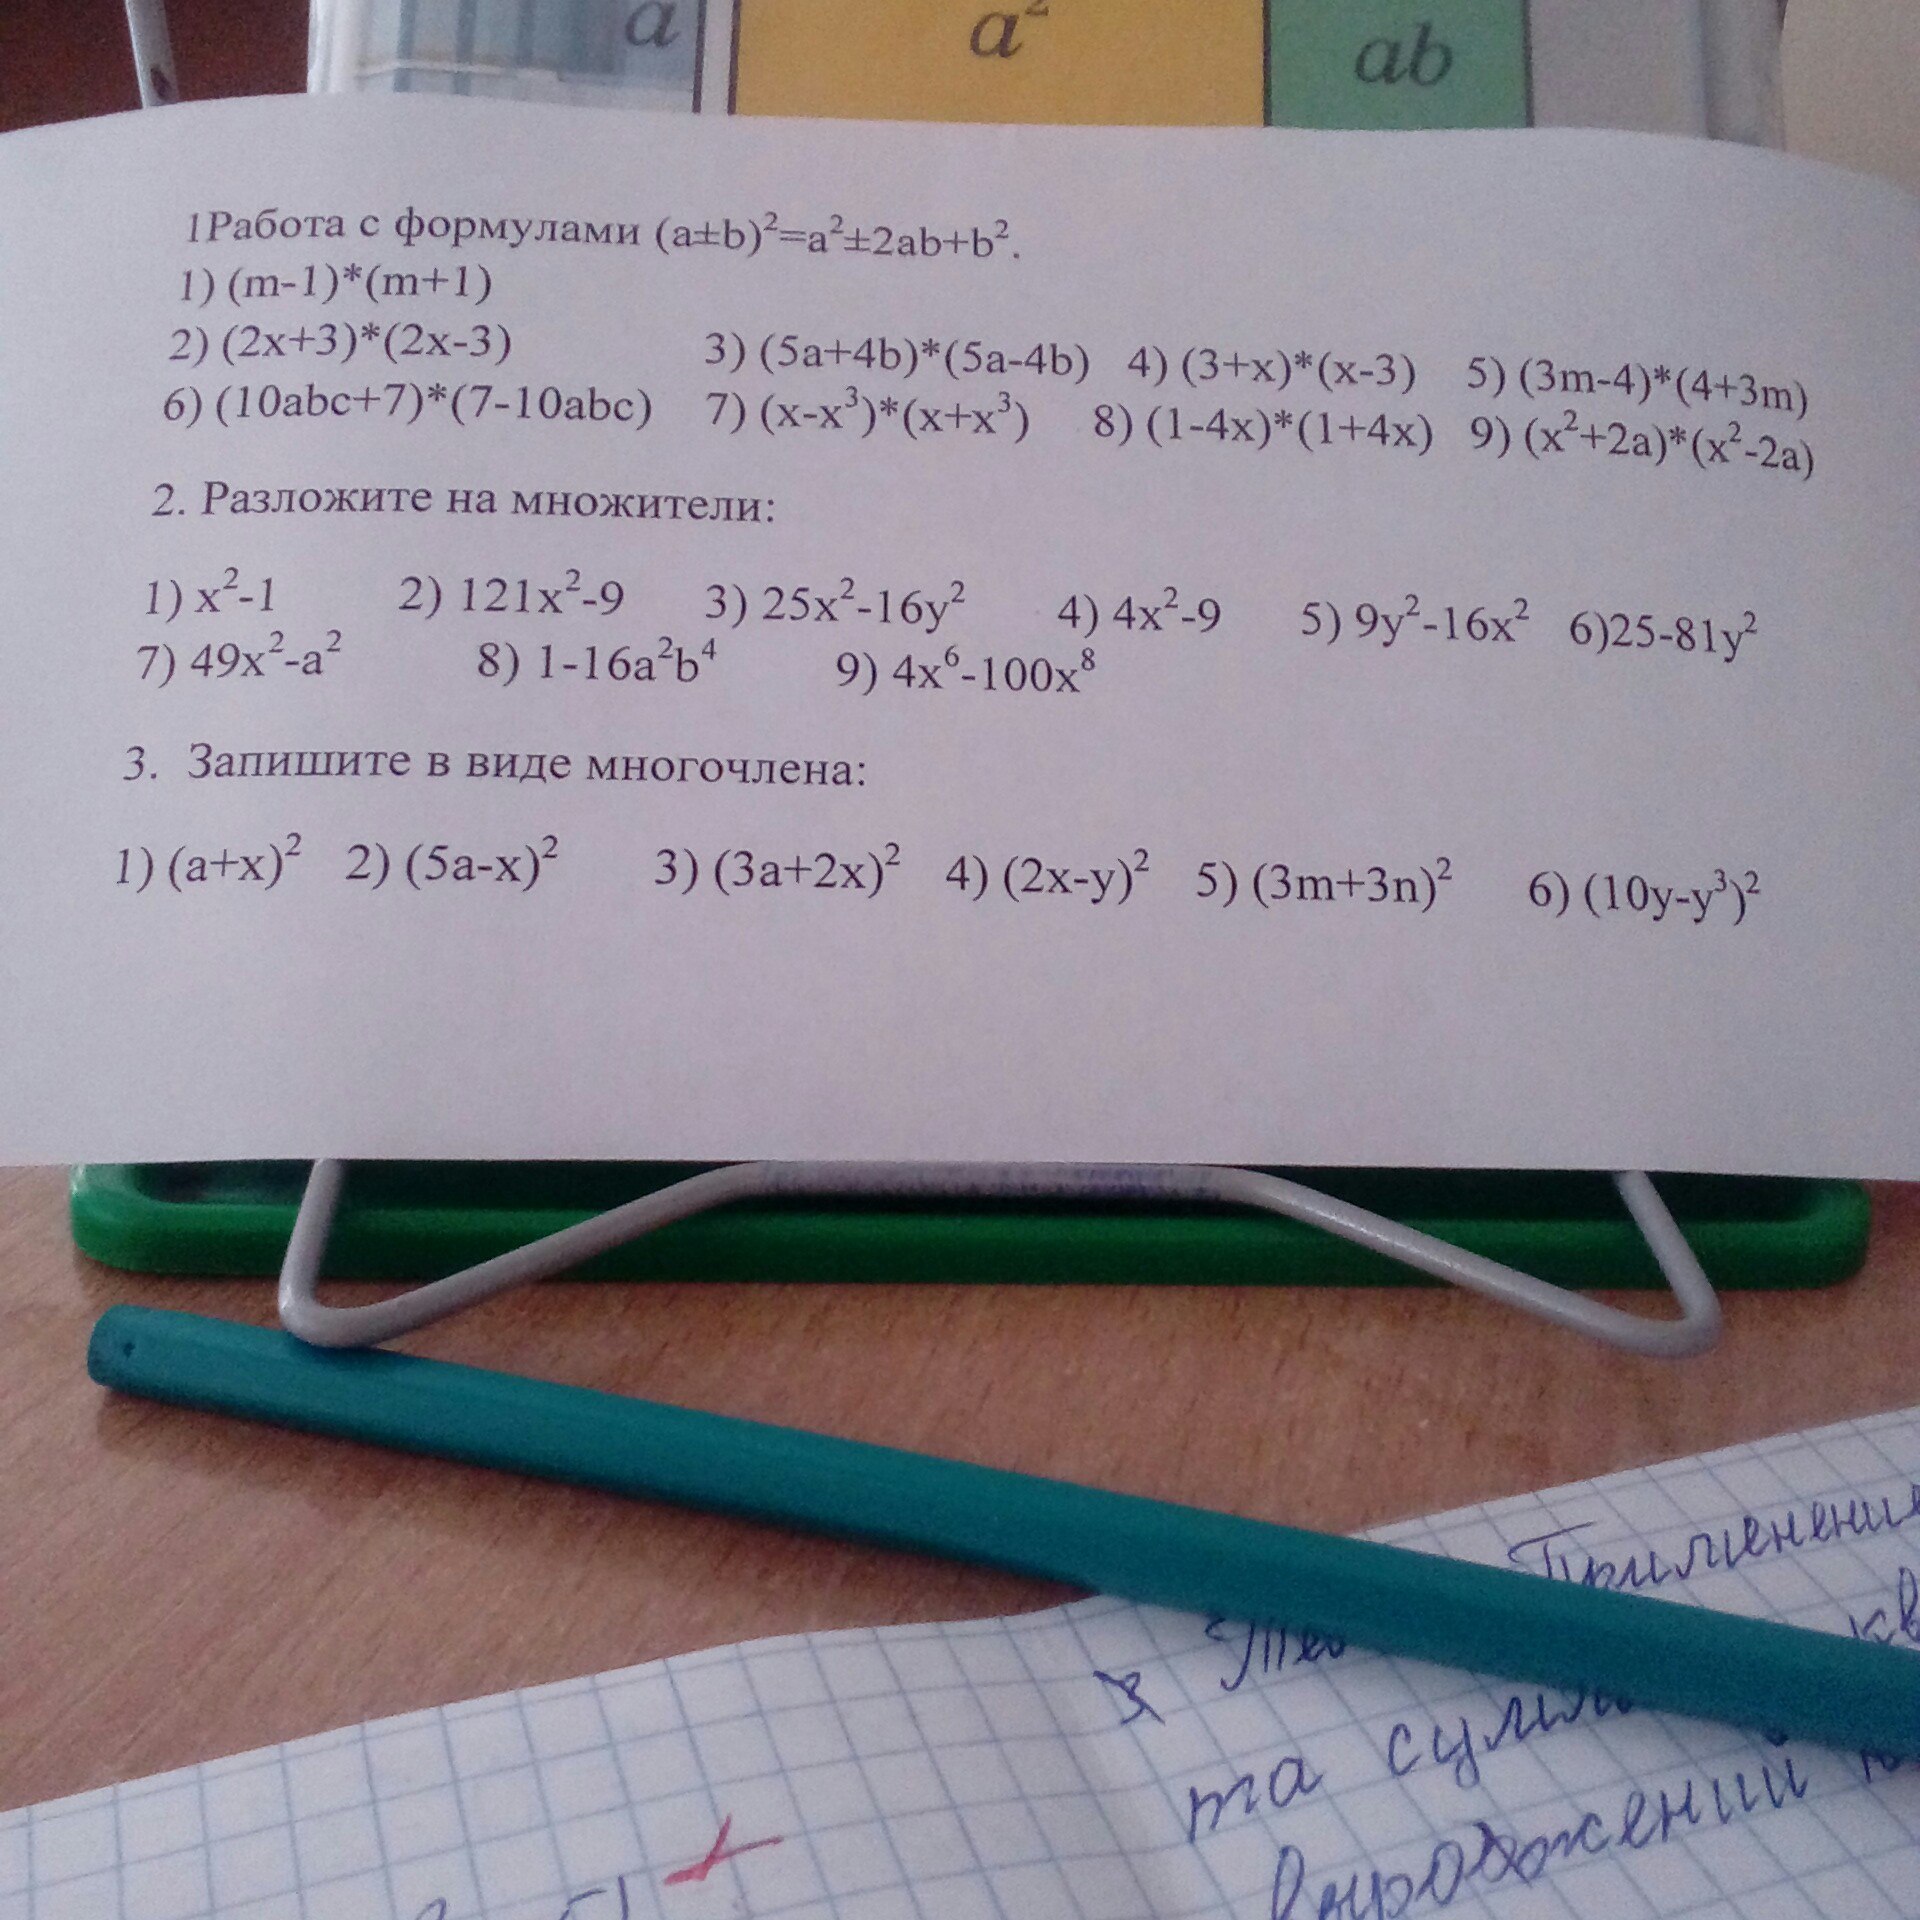 a a² ab
1Работа с формулами (a±b)²=a²±2ab+b².
1) (m-1)*(m+1)
2) (2x+3)*(2x-3) 3) (5a+4b)*(5a-4b) 4) (3+x)*(x-3) 5) (3m-4)*(4+3m)
6) (10abc+7)*(7-10abc) 7) (x-x³)*(x+x³) 8) (1-4x)*(1+4x) 9) (x²+2a)*(x²-2a)
2. Разложите на множители:
1) x²-1 2) 121x²-9 3) 25x²-16y² 4) 4x²-9 5) 9y²-16x² 6)25-81y²
7) 49x²-a² 8) 1-16a²b⁴ 9) 4x⁶-100x⁸
3. Запишите в виде многочлена:
1) (a+x)² 2) (5a-x)² 3) (3a+2x)² 4) (2x-y)² 5) (3m+3n)² 6) (10y-y³)²
Применение
та